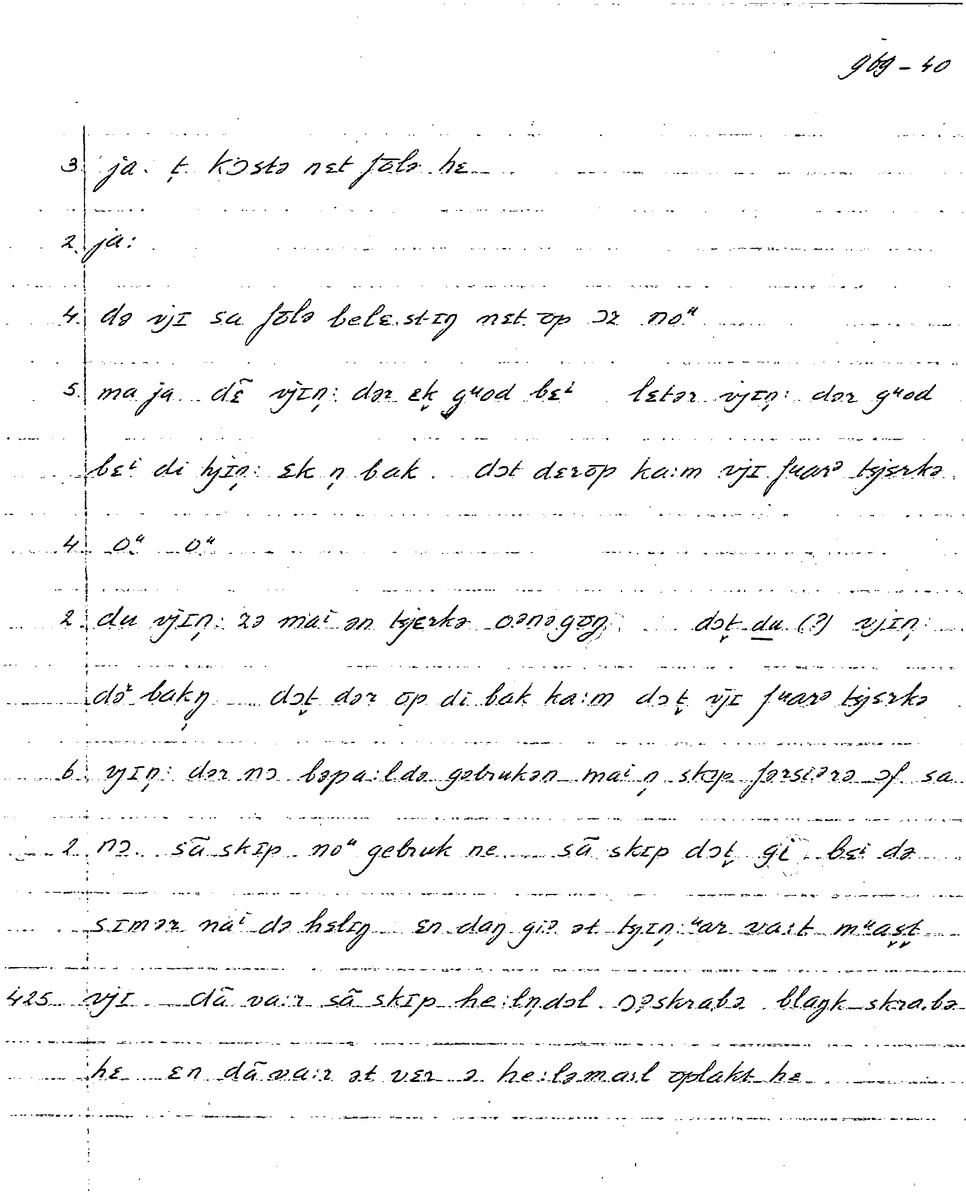 g69-40
3. ja. t̩ kɔstə nɛt fōlə hɛ
2. ja:
4. də vjɪ sa fōlə belɛ.stɪŋ nɛt ōp ɔr noᵘ
5. ma ja dɛ̄ vjɪn̩: dər ɛk gᵘod bɛⁱ lɛtər vjɪn̩: dər gᵘod
bɛⁱ di hjɪn̩: ɛk n̩ bak. dɔt dɛrōp ka:m vjɪ fuarə tjɛrkə
4. oᵘ oᵘ
2. du vjɪn̩: zə maⁱ ən tjɛrkə oənəgōŋ dɔt̬ du (?) vjɪn̩:
dər bakŋ̩ dɔt̬ dər ōp di bak ka:m dɔt̬ vjɪ fuarə tjɛrkə
6. vjɪn̩: dər nɔ bəpa.ldə gəbrukən maⁱ n̩ skɔp fərsiərə ɔf sa
2. nɔ. sā skɪp noᵘ gebruk ne sā skɪp dɔt̬ gi bɛⁱ də
sɪmər naⁱ də hɛlɪŋ ɛn daŋ giə ət tjɪn̩ ᵘar va:t mᵘas̬t̬
425 vjɪ dā va:r sā skɪp he:ln̩dəl ɔ:skrabə blaŋk skra.bə
hɛ ɛn dā va:r ət vɛr ə he:ləma:l ōplakt hɛ